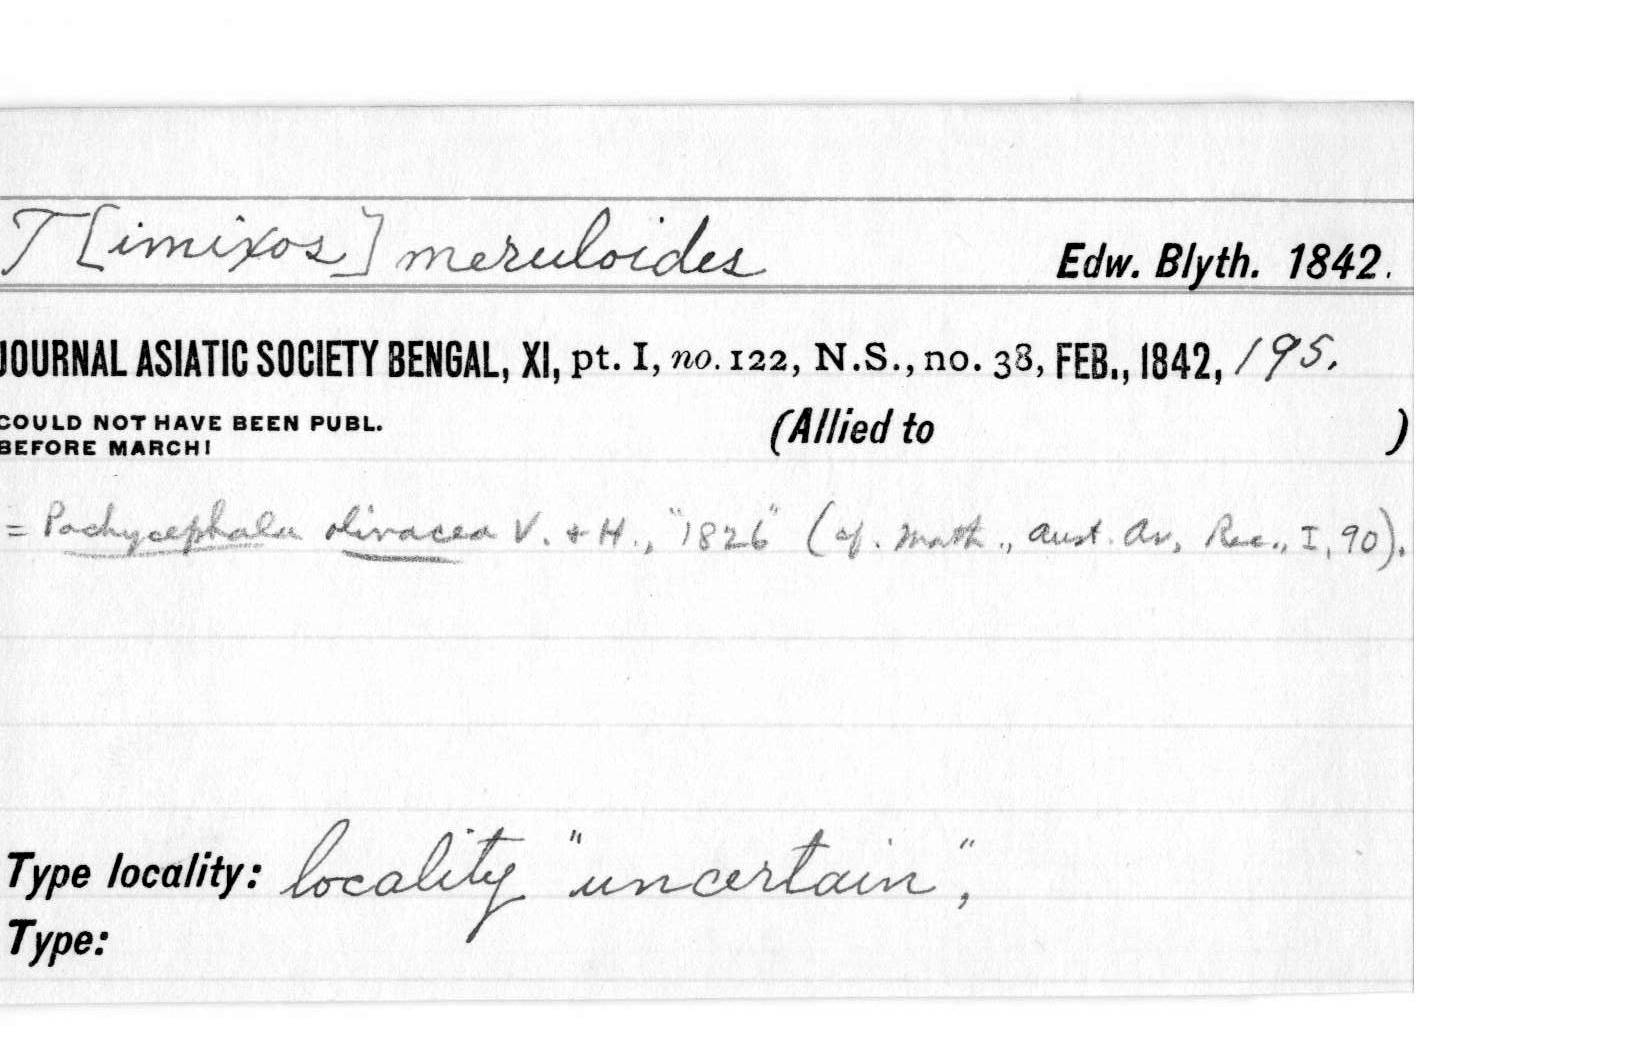 T[imixos] meruloides Edw. Blyth. 1842.
JOURNAL ASIATIC SOCIETY BENGAL, XI, pt. I, no. 122, N.S., no. 38, FEB., 1842, 195.
COULD NOT HAVE BEEN PUBL.
BEFORE MARCH!
(Allied to )
= Pachycephala olivacea V. & H., "1826" (cf. Math., Aust. Av. Rec., I, 90).
Type locality: locality "uncertain",
Type: